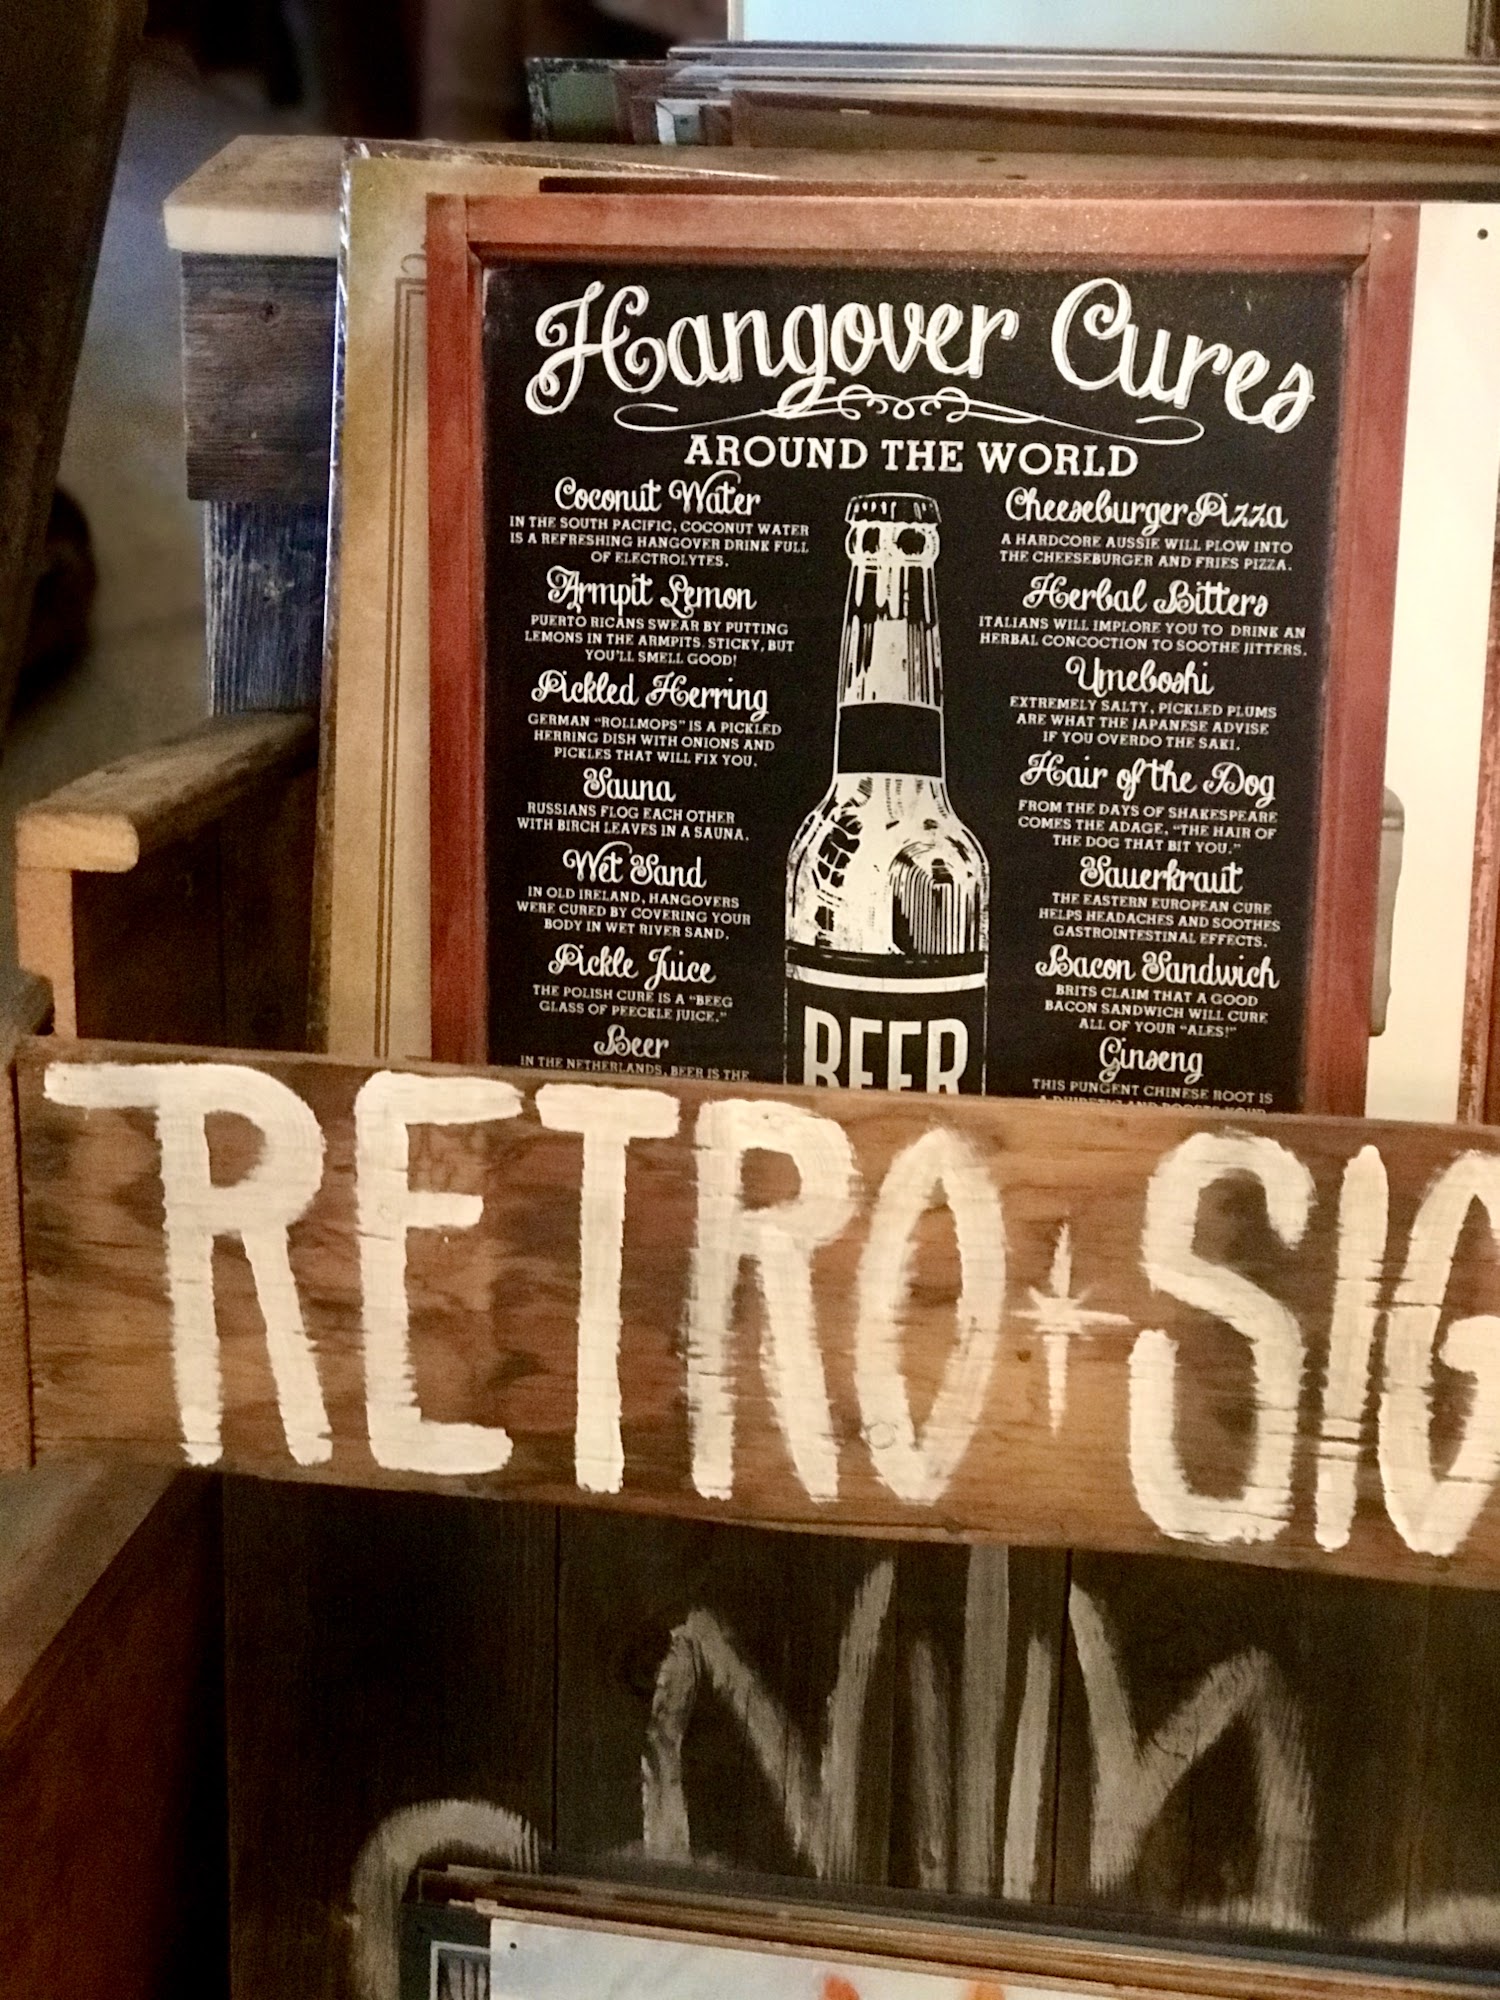 Hangover Cures
AROUND THE WORLD
Coconut Water
IN THE SOUTH PACIFIC, COCONUT WATER
IS A REFRESHING HANGOVER DRINK FULL
OF ELECTROLYTES.
Armpit Lemon
PUERTO RICANS SWEAR BY PUTTING
LEMONS IN THE ARMPITS. STICKY, BUT
YOU'LL SMELL GOOD!
Pickled Herring
GERMAN "ROLLMOPS" IS A PICKLED
HERRING DISH WITH ONIONS AND
PICKLES THAT WILL FIX YOU.
Sauna
RUSSIANS FLOG EACH OTHER
WITH BIRCH LEAVES IN A SAUNA.
Wet Sand
IN OLD IRELAND, HANGOVERS
WERE CURED BY COVERING YOUR
BODY IN WET RIVER SAND.
Pickle Juice
THE POLISH CURE IS A "BEEG
GLASS OF PEECKLE JUICE."
Beer
IN THE NETHERLANDS, BEER IS THE
BEER
Cheeseburger Pizza
A HARDCORE AUSSIE WILL PLOW INTO
THE CHEESEBURGER AND FRIES PIZZA.
Herbal Bitters
ITALIANS WILL IMPLORE YOU TO DRINK AN
HERBAL CONCOCTION TO SOOTHE JITTERS.
Umeboshi
EXTREMELY SALTY, PICKLED PLUMS
ARE WHAT THE JAPANESE ADVISE
IF YOU OVERDO THE SAKI.
Hair of the Dog
FROM THE DAYS OF SHAKESPEARE
COMES THE ADAGE, "THE HAIR OF
THE DOG THAT BIT YOU."
Sauerkraut
THE EASTERN EUROPEAN CURE
HELPS HEADACHES AND SOOTHES
GASTROINTESTINAL EFFECTS.
Bacon Sandwich
BRITS CLAIM THAT A GOOD
BACON SANDWICH WILL CURE
ALL OF YOUR "ALES!"
Ginseng
THIS PUNGENT CHINESE ROOT IS
RETRO SIG